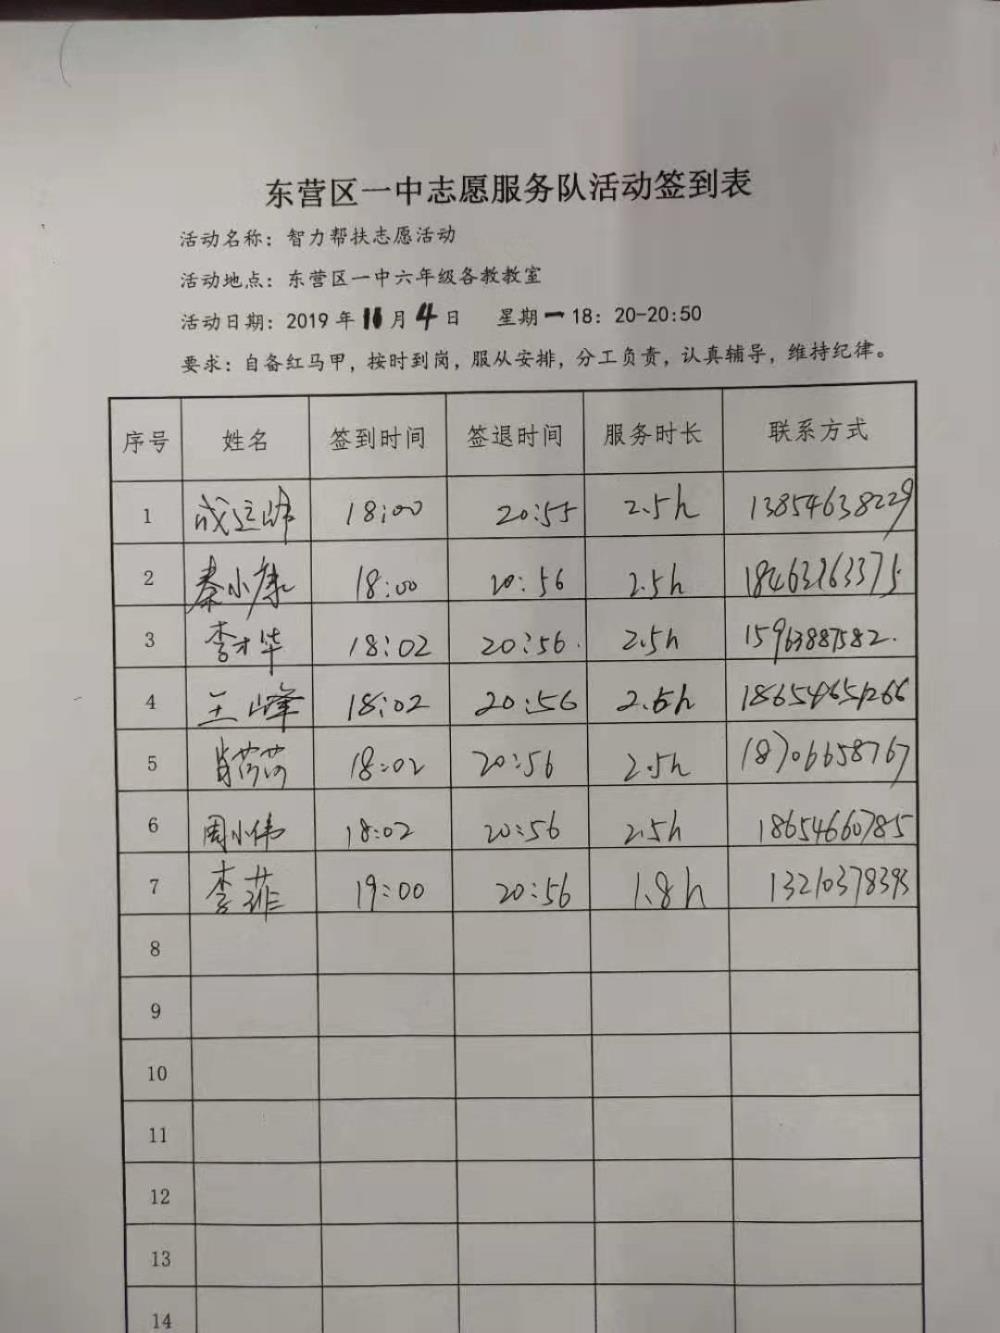 东营区一中志愿服务队活动签到表
活动名称：智力帮扶志愿活动
活动地点：东营区一中六年级各教教室
活动日期：2019年11月4日 星期一18：20-20:50
要求：自备红马甲，按时到岗，服从安排，分工负责，认真辅导，维持纪律。
序号 姓名 签到时间 签退时间 服务时长 联系方式
1 18:00 20:55 2.5h 13854638229
2 秦小康 18:00 20:56 2.5h 18463263375
3 李才华 18:02 20:56 2.5h 15963887582
4 王峰 18:02 20:56 2.5h
5 肖芬芬 18:02 20:56 2.5h 18706658767
6 周小伟 18:02 20:56 2.5h 18654660785
7 李菲 19:00 20:56 1.8h 13210378393
8
9
10
11
12
13
14